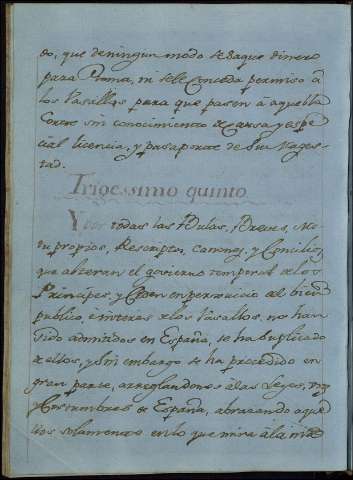 do, que de ningun modo se saque dinero
para Roma, ni se le Conceda permiso à
los Vasallos para que pasen à aquella
Corte sin conocimiento de Causa, y espe
cial licencia, y pasaporte de Su Mages-
tad.
Trigessimo quinto
Y por todas las Bulas, Breves, Mo-
tu propios, Rescriptos, Canones, y Concilios
que alteran el govierno temporal de los
Principes, y ceden en perjuicio al bien
publico, è interes de los Vasallos, no han
sido admitidos en España, se ha suplicado
de ellos, y sin embargo se ha procedido en
gran parte, arreglandonos à las Leyes,
y Costumbres de España, abrazando aque
llos solamente en lo que mira à la